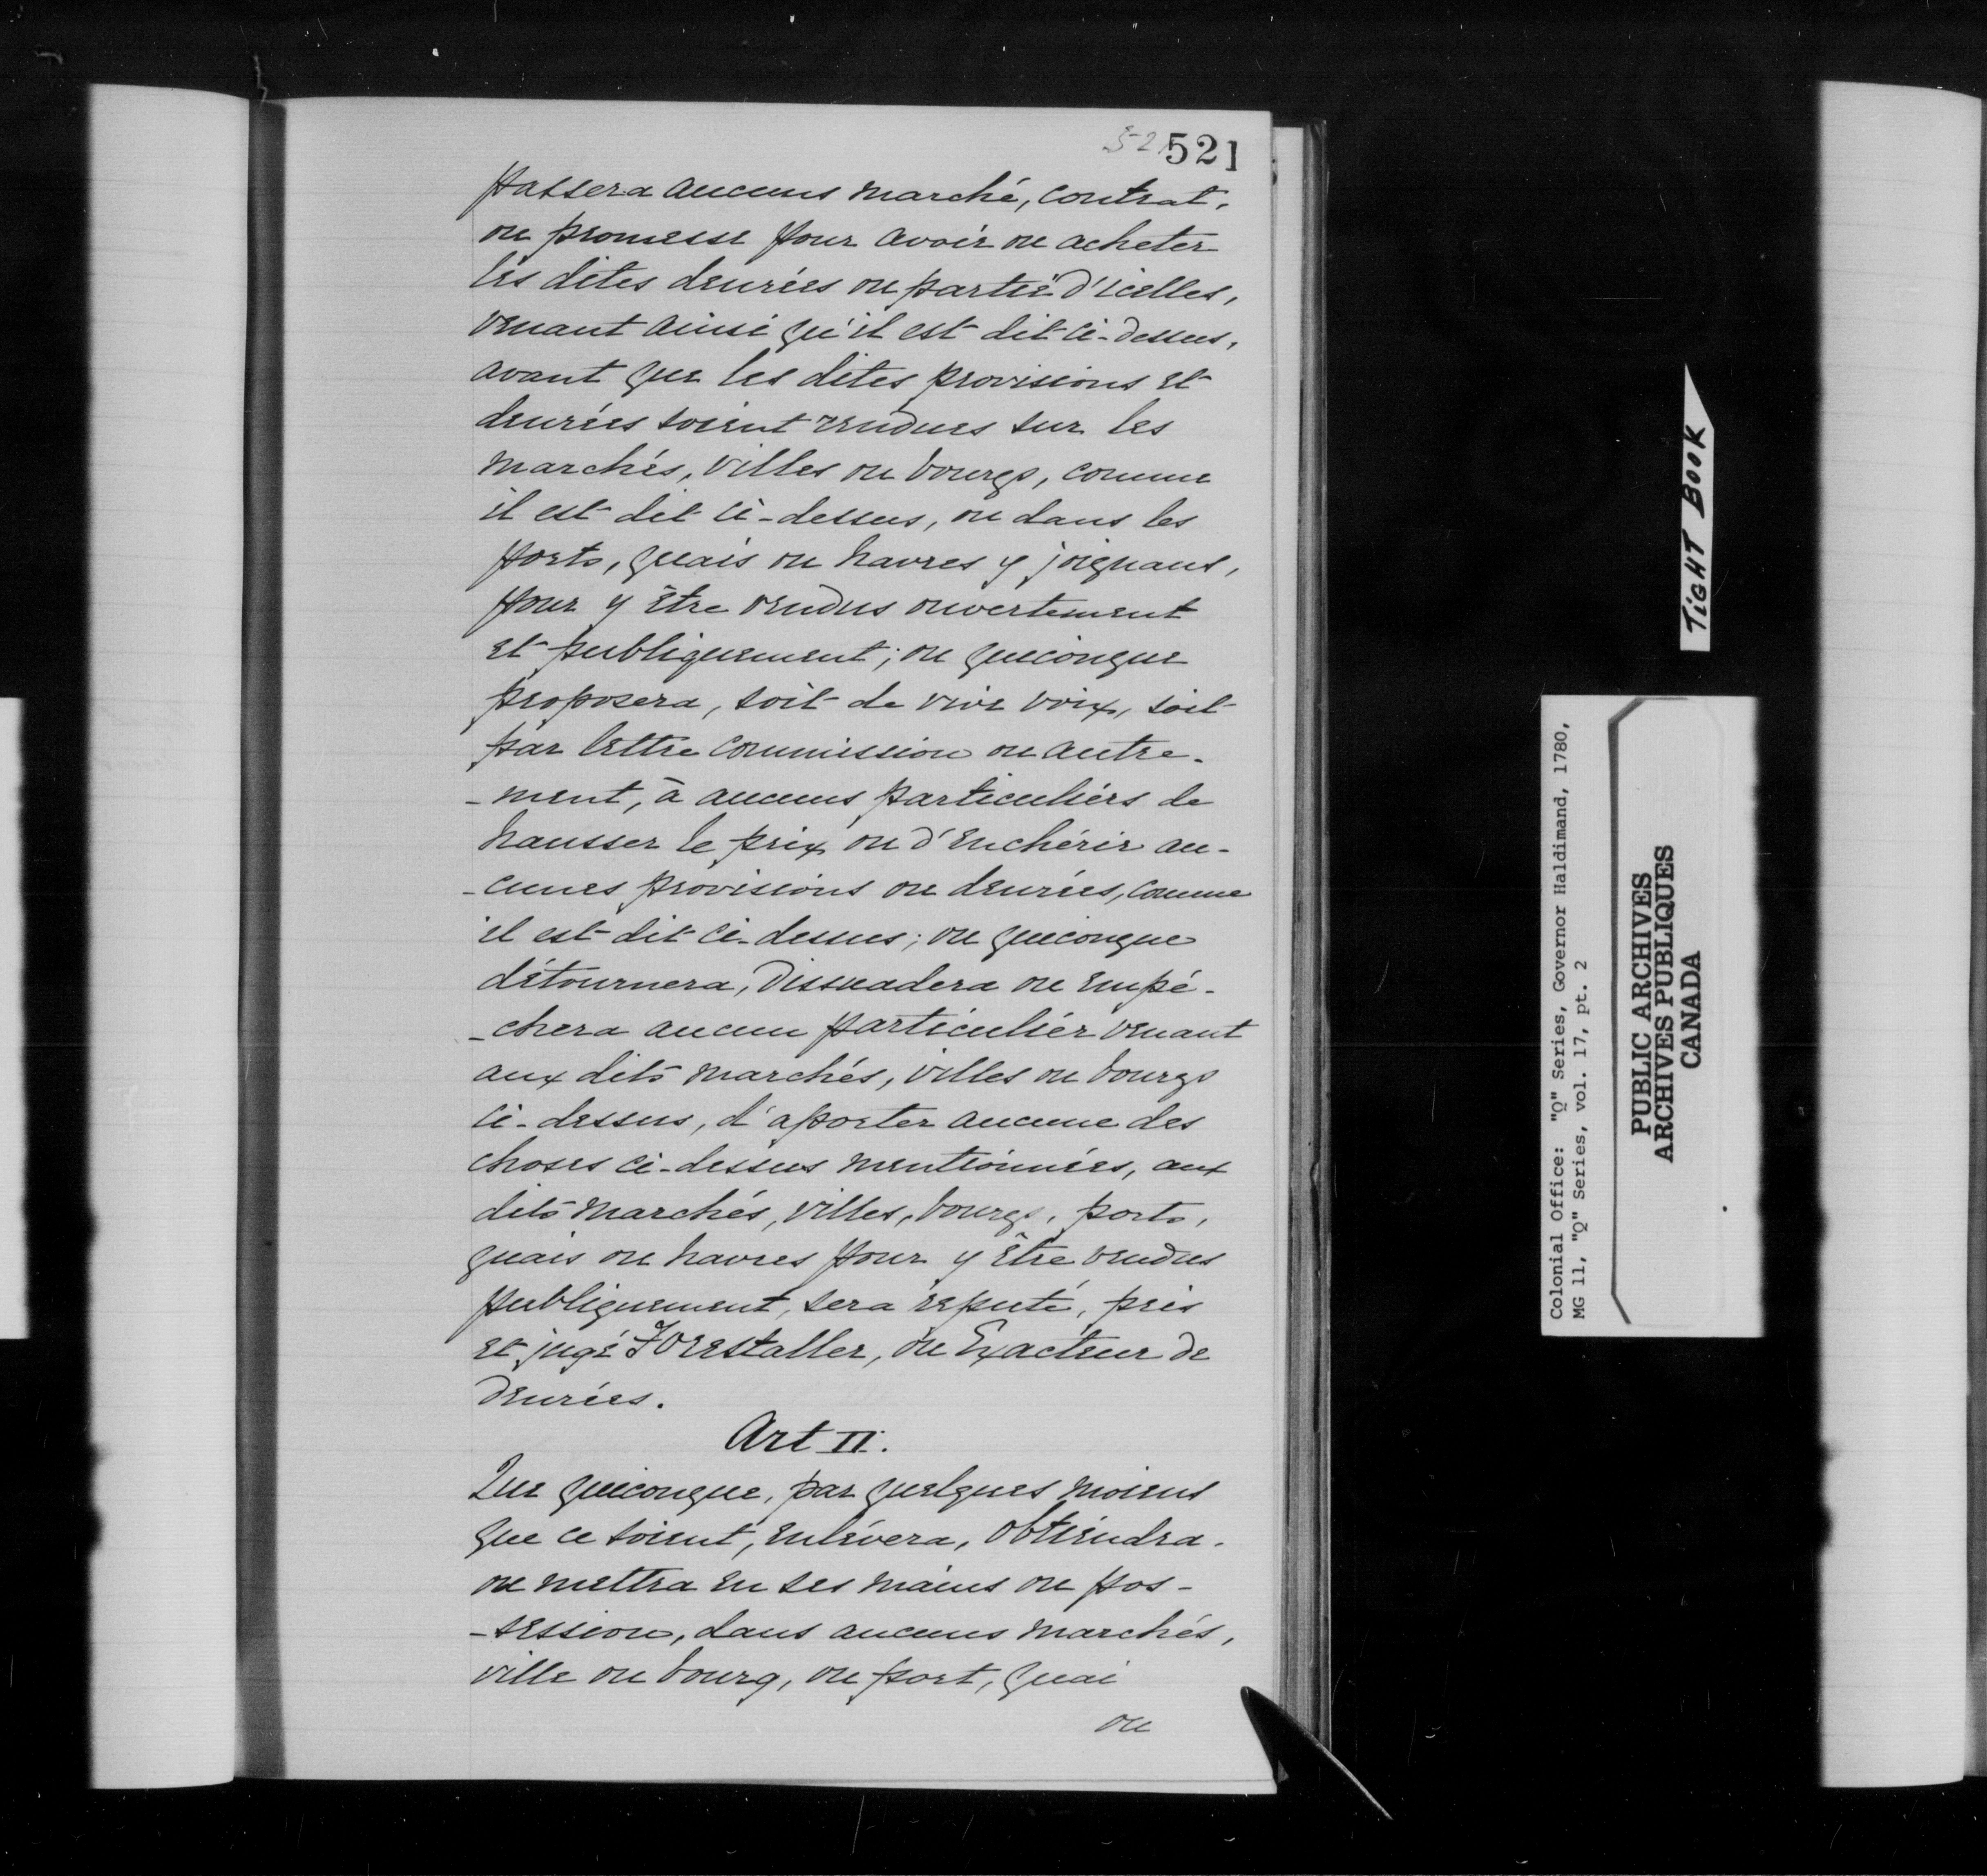 521
521
passera aucuns marché, contrat,
ou promesse pour avoir ou acheter
les dites denrées ou partie d'icelles,
venant ainsi qu'il est dit ci-dessus,
avant que les dites provisions et
denrées soient rendues sur les
marchés, villes ou bourgs, comme
il est dit ci-dessus, ou dans les
ports, quais ou havres y joignans,
pour y être vendus ouvertement
et publiquement; ou quiconque
proposera, soit de vive voix, soit
par lettre commission ou autre-
-ment, à aucuns particuliers de
hausser le prix ou d'enchérir au-
-cunes provisions ou denrées, comme
il est dit ci-dessus; ou quiconque
détournera, dissuadera ou empê-
-chera aucun particulier venant
aux dits marchés, villes ou bourgs
ci-dessus, d'aporter aucune des
choses ci-dessus mentionnées, aux
dits marchés, villes, bourgs, ports,
quais ou havres pour y être vendus
publiquement, sera réputé, pris
et jugé Forestaller, ou Exacteur de
denrées.
Art II.
Que quiconque, par quelques moiens
que ce soient, enlèvera, obtiendra,
ou mettra en ses mains ou pos-
-session, dans aucuns marchés,
ville ou bourg, ou port, quai
ou
TIGHT BOOK
Colonial Office: "Q" Series, Governor Haldimand, 1780,
MG 11, "Q" Series, vol. 17, pt. 2
PUBLIC ARCHIVES
ARCHIVES PUBLIQUES
CANADA